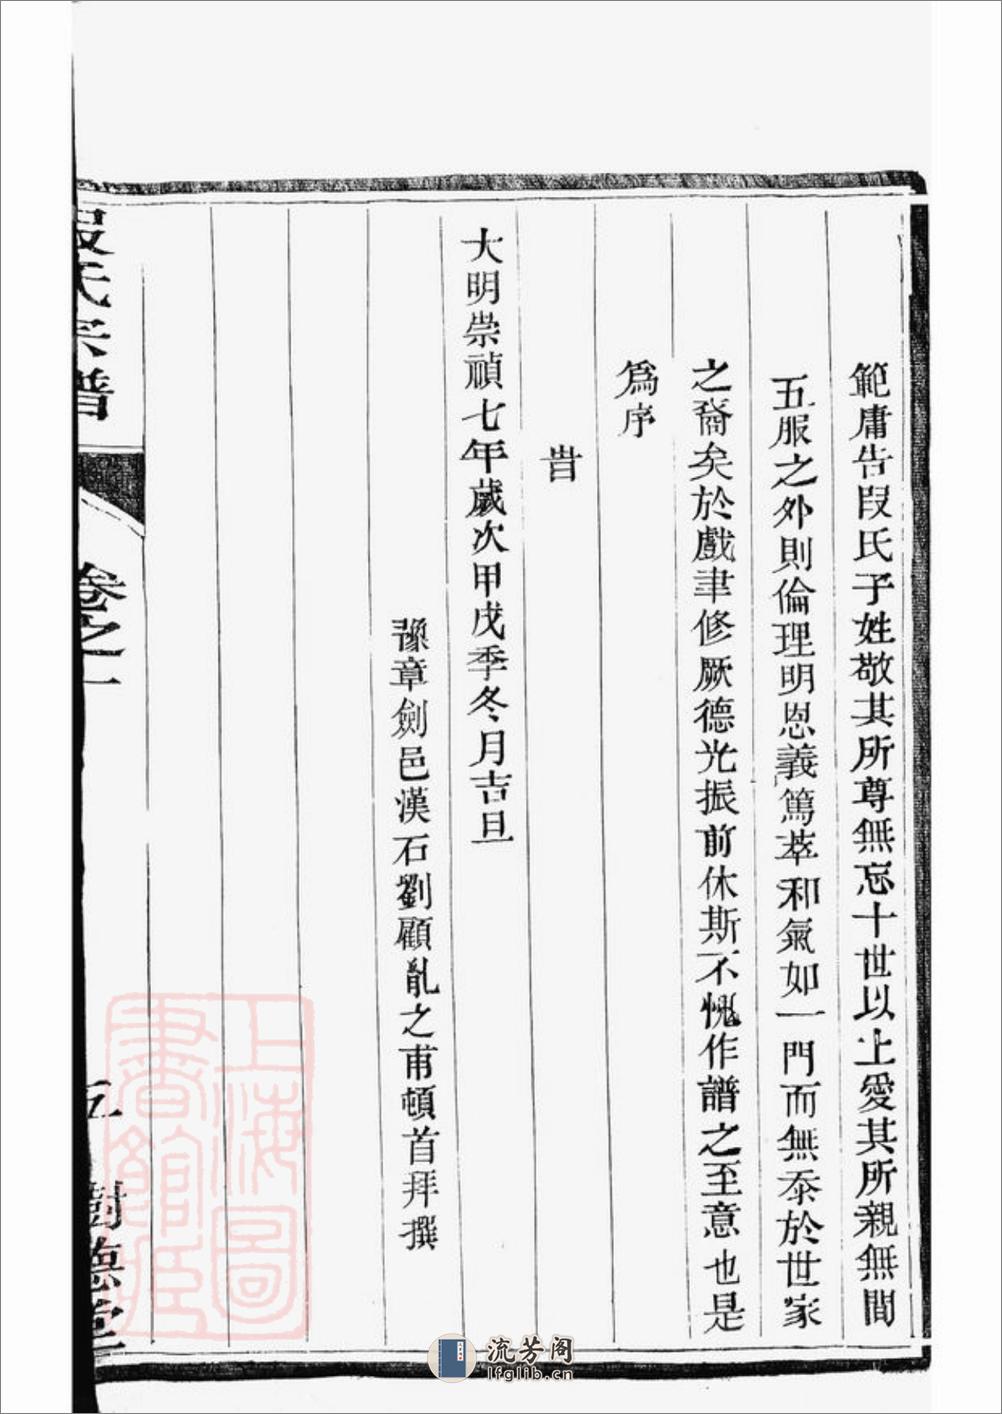 範庸告段氏子姓敬其所尊無忘十世以上愛其所親無間
五服之外則倫理明恩義篤萃和氣如一門而無忝於世家
之裔矣於戲聿修厥德光振前休斯不愧作譜之至意也是
為序
旹
大明崇禎七年歲次甲戌季冬月吉旦
豫章劍邑漢石劉顧亂之甫頓首拜撰
段氏宗譜
卷之一
五
樹德堂
上海圖
書館藏
流芳阁
lfglib.cn